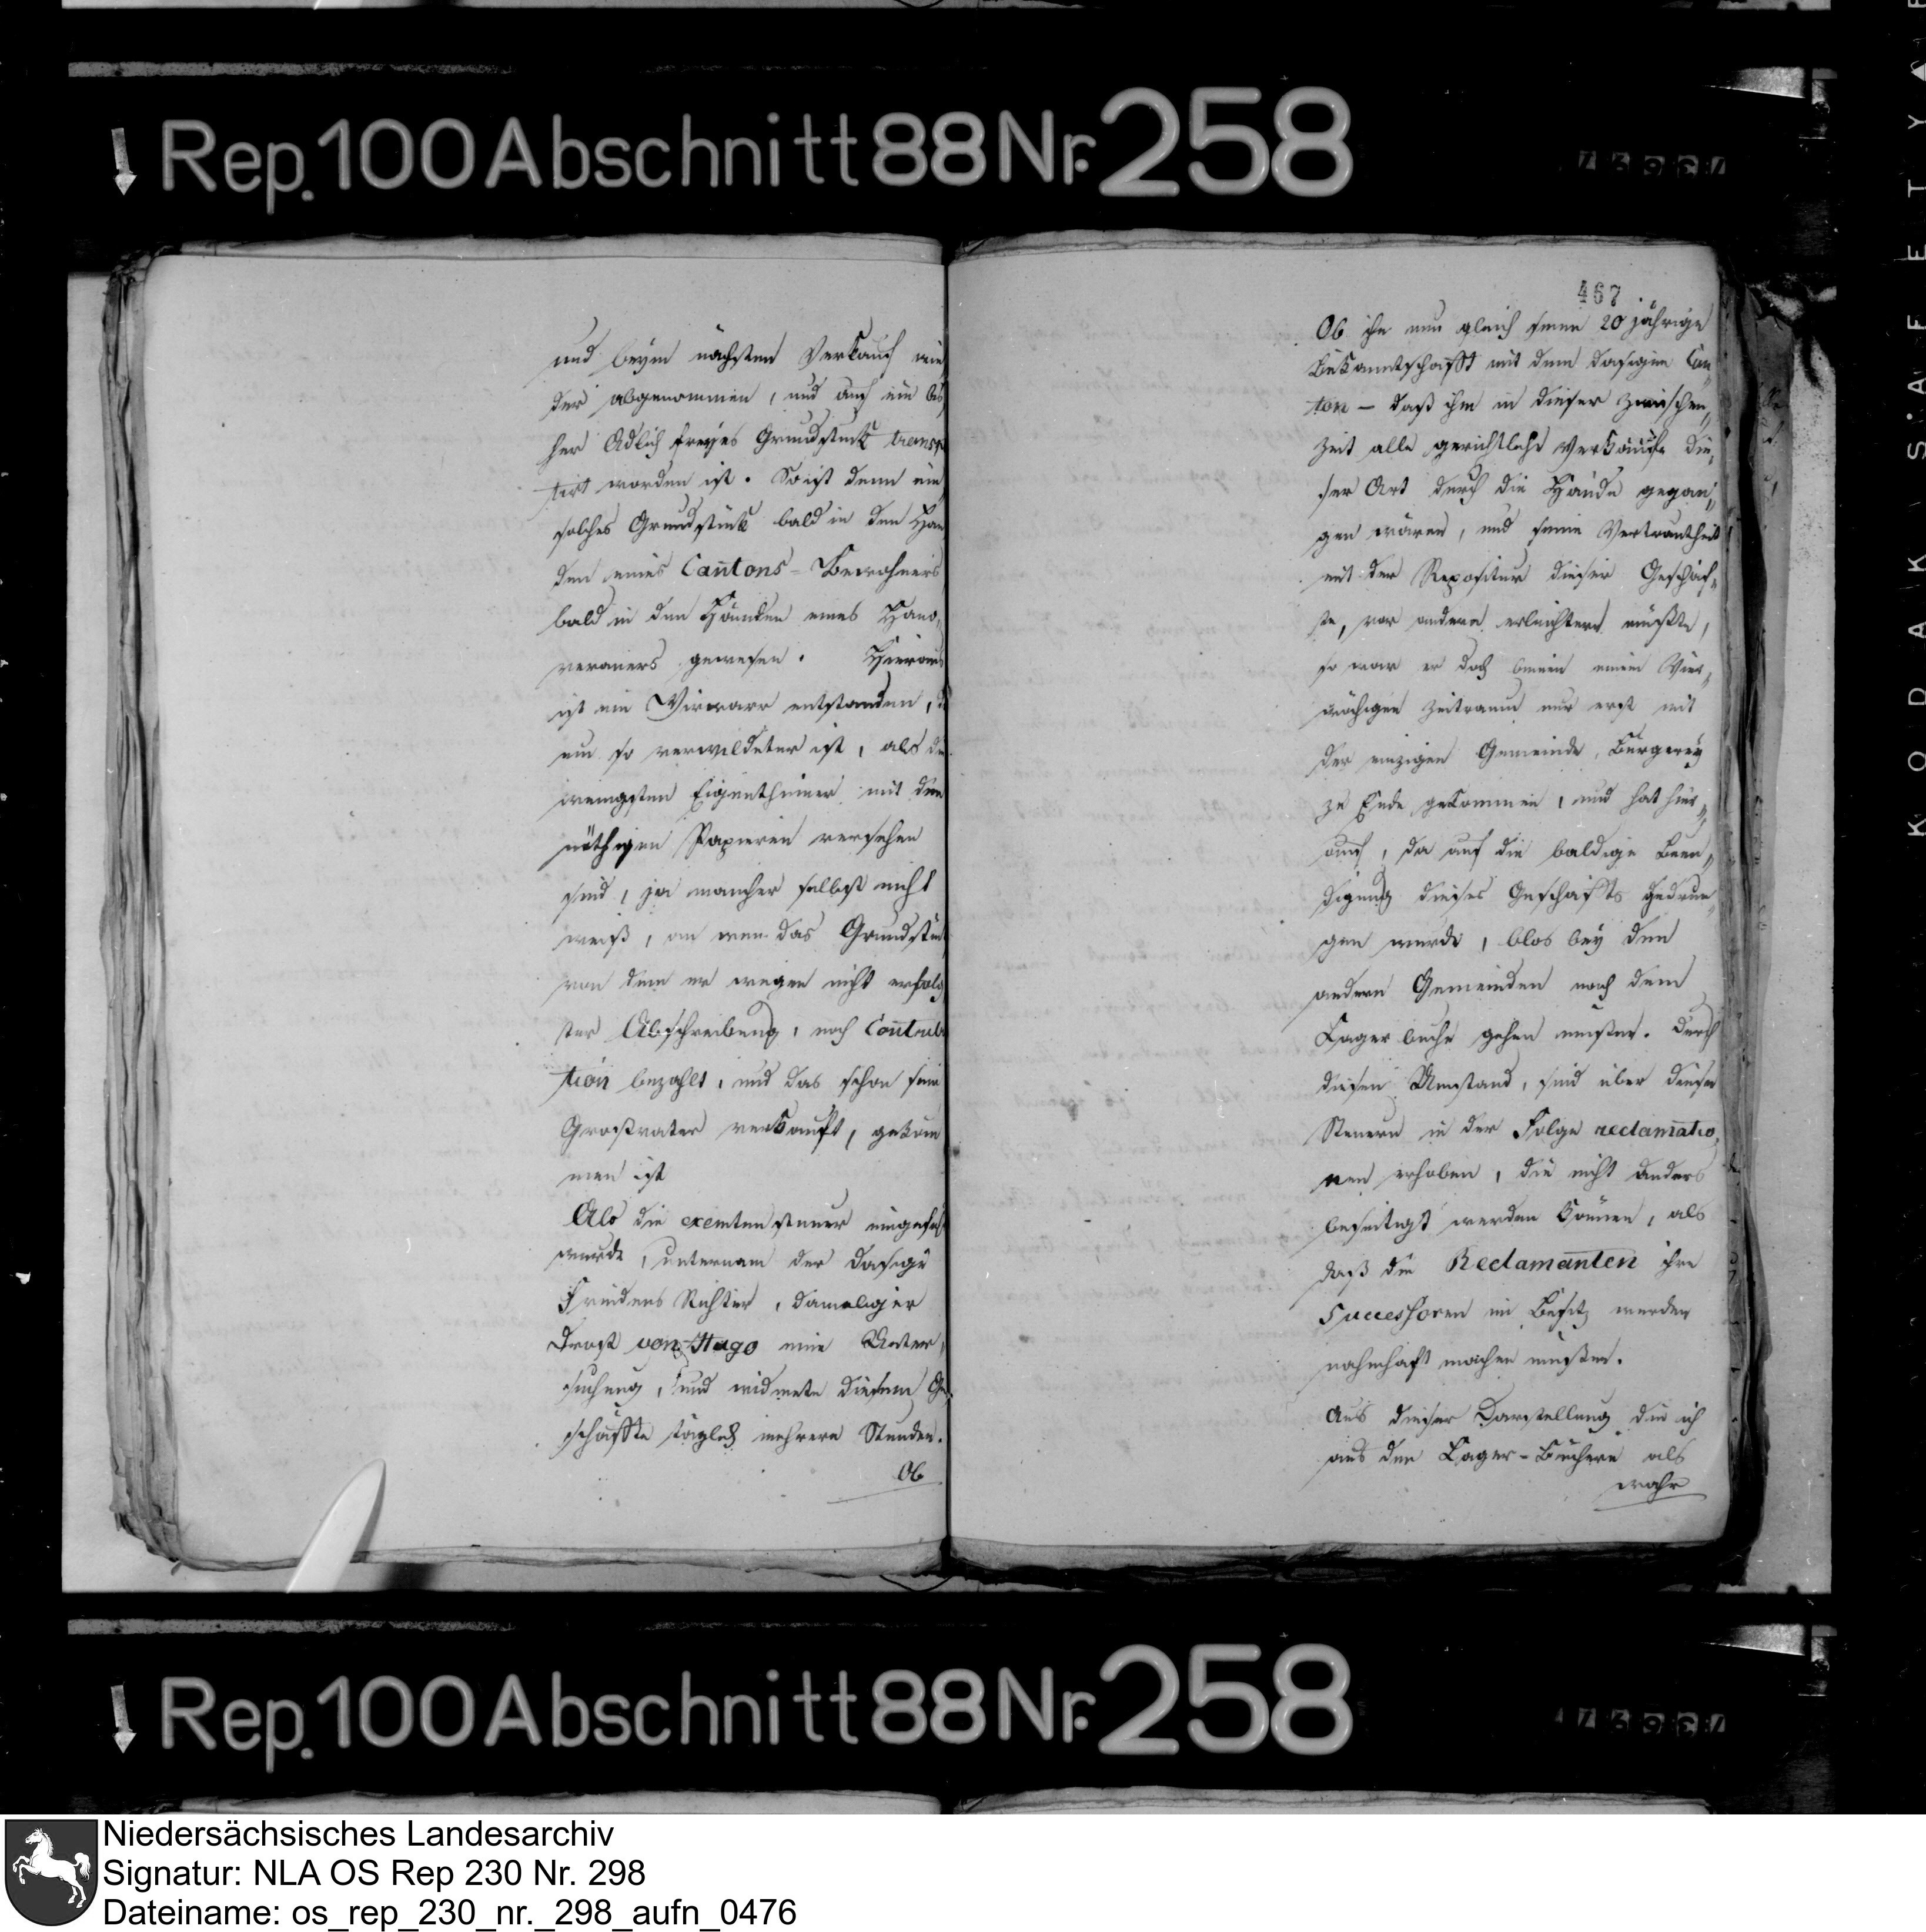 Rep. 100 Abschnitt 88 Nr. 258
und beym nächsten Verkauf wie
der abgenommen, und auch ein bis
her Adlich freyes Grundstück transp
tirt worden ist. So ist denn ein
solches Grundstück bald in den Hän
den eines Cantons-Bewohners
bald in den Händen eines Hano,
veraners gewesen. Hieraus
ist ein Wirwarr entstanden, d
um so verwildeter ist, als die
wenigsten Eigenthümer mit den
nöthigen Papieren versehen
sind, ja mancher selbst nicht
weiß, an wen das Grundstück
von dem er wegen nicht erfolg
ter Abschreibung, noch Contrib
tion bezahlt, und das schon sein
Grosvater verkauft, gekom
men ist
Als die exemtensteuer eingefüh
wurde, unternam der dasige
Friedens Richter, damaliger
Drost von Hugo eine Unter,
suchung, und widmete diesem Ge
schäffte täglich mehrere Stunden.
Ob
467
Ob ihn nun gleich seine 20 jährige
Bekanntschafft mit dem dasigen Can„
ton – daß ihm in dieser Zwischen„
Zeit alle gerichtliche Verkäufe die„
ser Art durch die Hände gegan„
gen wären, und seine Vertrautheit
mit der Repositur dieser Geschäf„
te, vor andern erleichtern müßte,
so war er doch binnen einem Vier„
wöchigen Zeitraum nur erst mit
der einzigen Gemeinde, Bürgerey
zu Ende gekommen, und hat hier„
auf, da auf die baldige Been„
digung dieses Geschäfts gedrun„
gen wurde, blos bey den
andern Gemeinden nach dem
Lagerbuche gehen müßen. Durch
diesen Umstand, sind über diese
Steuern in der Folge reclamatio„
nen erhoben, die nicht anders
beseitigt werden können, als
daß die Reclamanten ihre
Successoren im Besitz werden
nahmhaft machen müßen.
Aus dieser Darstellung die ich
aus den Lager-Büchern als
wahr
Rep. 100 Abschnitt 88 Nr. 258
KODAK SAFETY
Niedersächsisches Landesarchiv
Signatur: NLA OS Rep 230 Nr. 298
Dateiname: os_rep_230_nr._298_aufn_0476